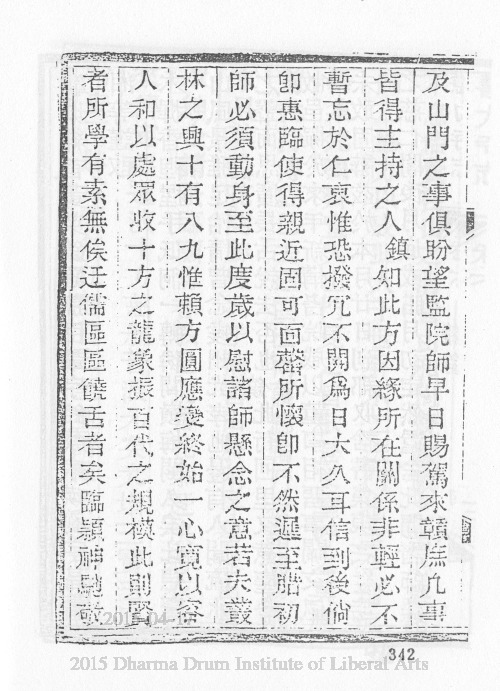 及山門之事俱盼望監院師早日賜駕來贛庶凡事
皆得主持之人鎮知此方因緣所在關係非輕必不
暫忘於仁衷惟恐撥冗不開為日大久耳信到後倘
卽惠臨使得親近固可面罄所懷卽不然遲至腊初
師必須動身至此度歲以慰諸師懸念之意若夫叢
林之興十有八九惟賴方圓應變終始一心寬以容
人和以處眾收十方之龍象振百代之規模此則賢
者所學有素無俟迂儒區區饒舌者矣臨穎神馳敬
342
2015 Dharma Drum Institute of Liberal Arts